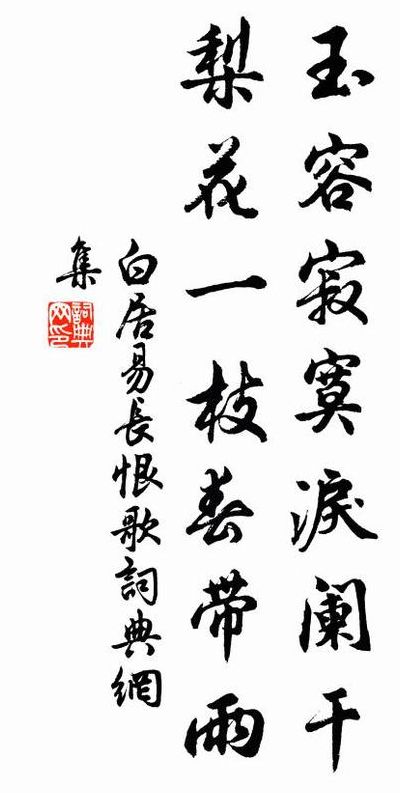 玉容寂寞淚阑干
梨花一枝春帶雨
白居易長恨歌詞典網
集
詞典
网印